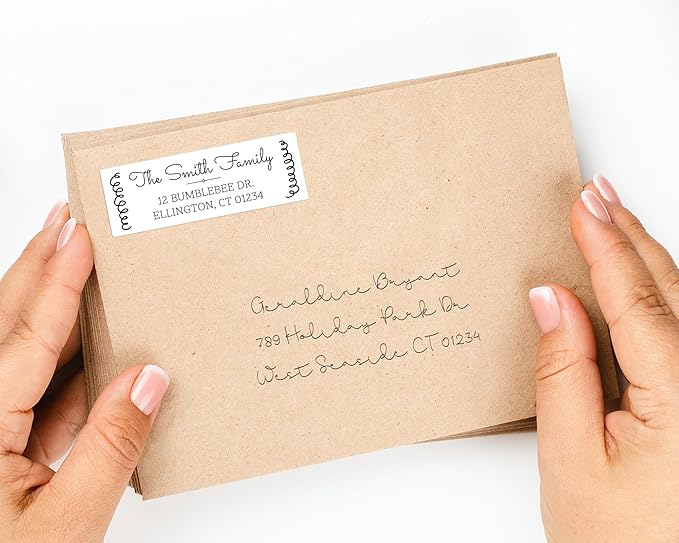 The Smith Family
12 BUMBLEBEE DR.
ELLINGTON, CT 01234
Geraldine Bryant
789 Holiday Park Dr.
West Seaside CT 01234